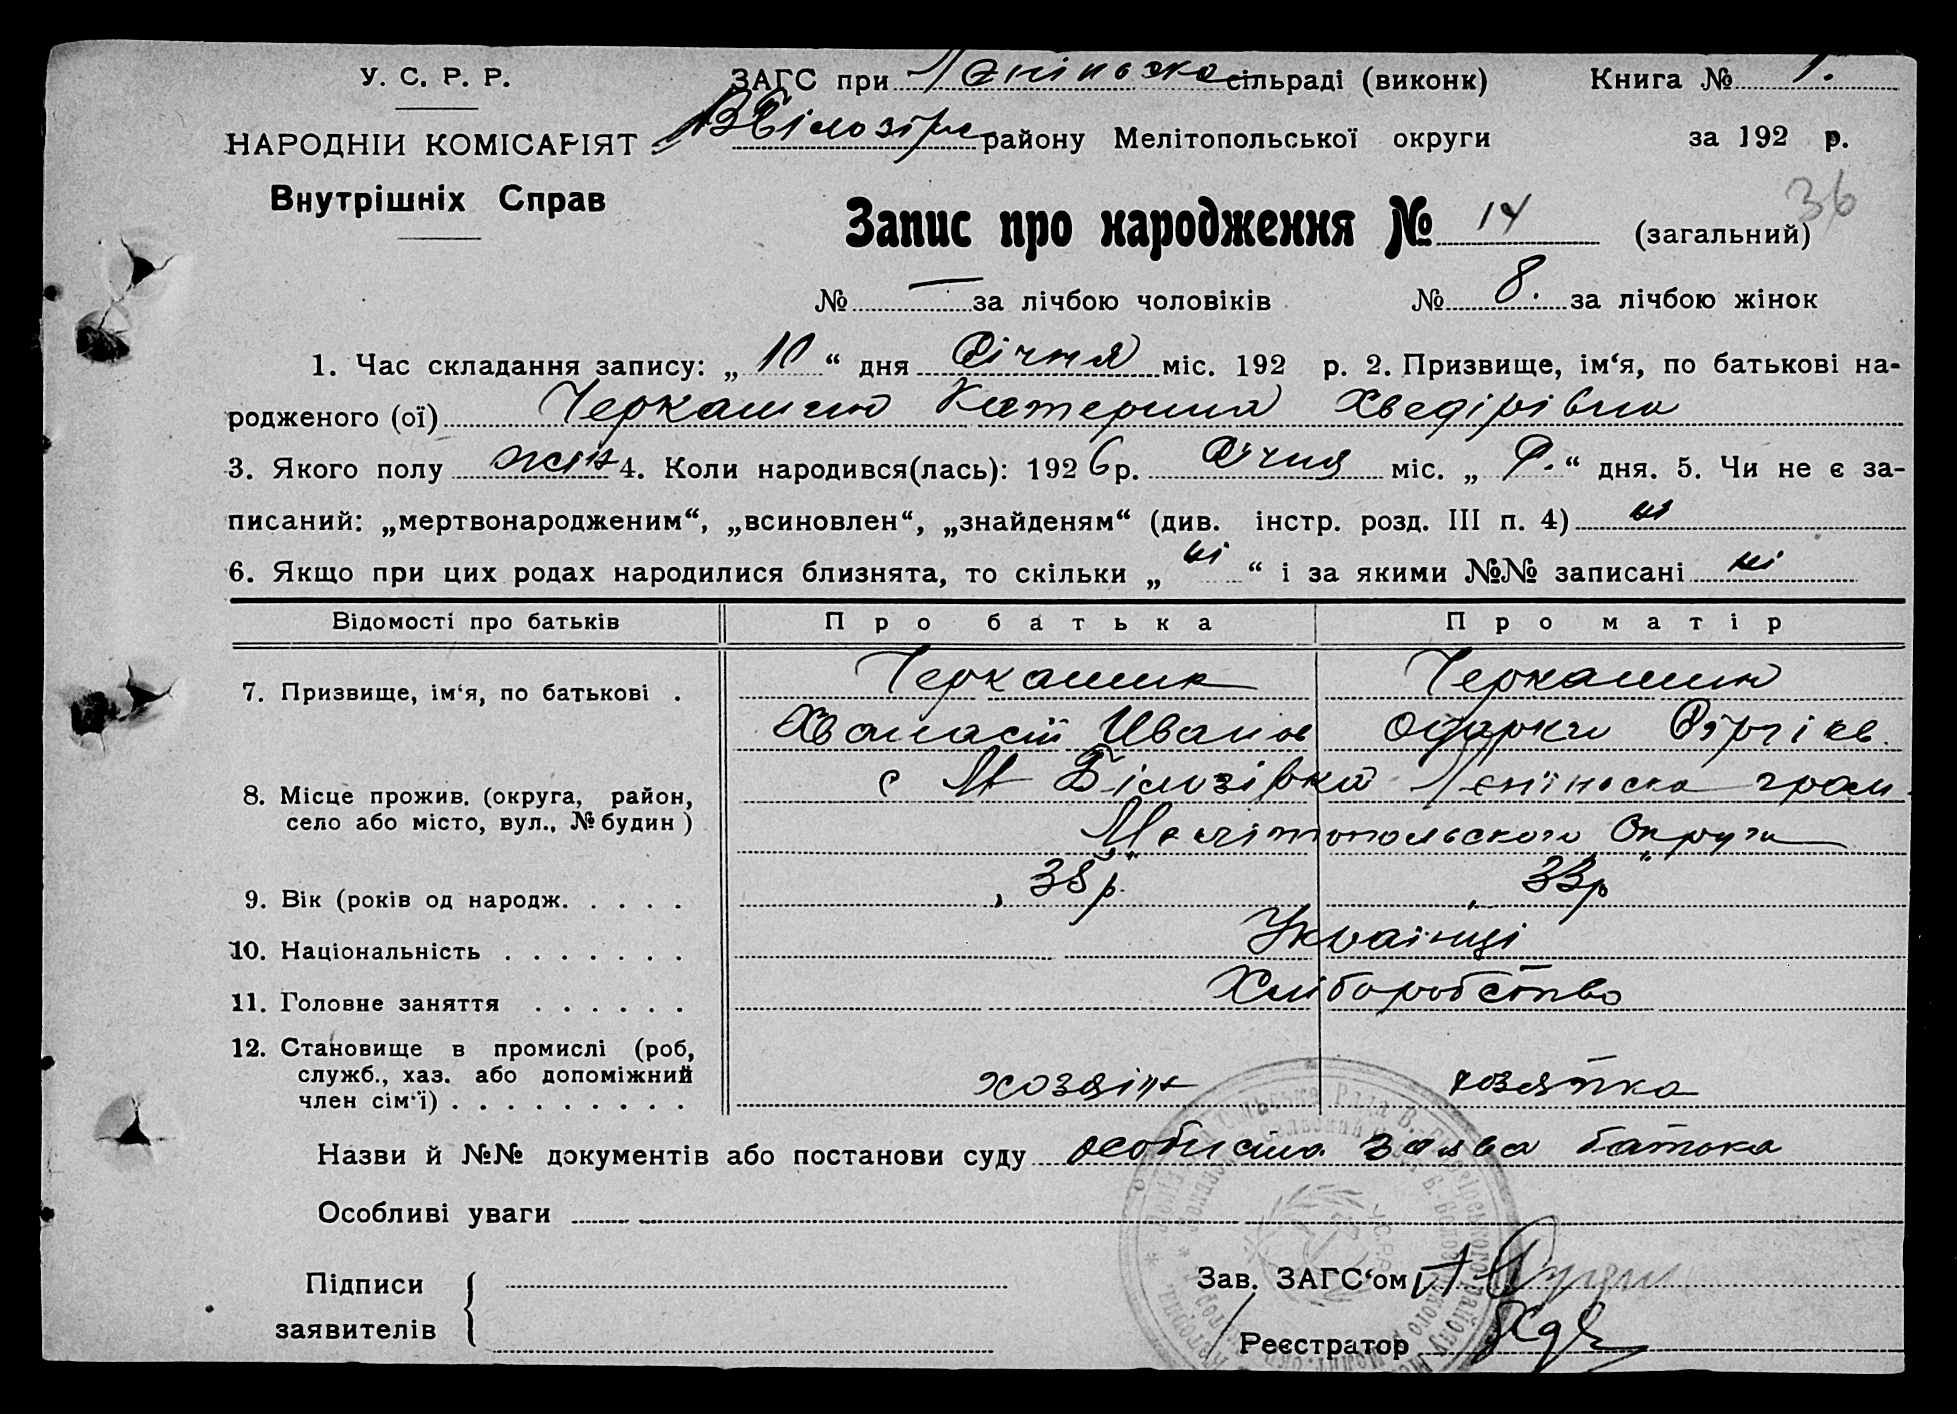 У. С. Р. Р.
ЗАГС при Леніньска сільраді (виконк) Книга № 1.
НАРОДНІИ КОМІСАРІЯТ
ВБілозірс району Мелітопольської округи за 192 р.
Внутрішніх Справ
36
Запис про народження № 14 (загальний)
№ — за лічбою чоловіків № 8. за лічбою жінок
1. Час складання запису: „ 10 “ дня Січня міс. 192 р. 2. Призвище, ім‘я, по батькові на-
родженого (ої) Черкашин Катерина Хведірівна
3. Якого полу жін 4. Коли народився(лась): 1926 р. Січня міс. „ 9. “ дня. 5. Чи не є за-
писаний: „мертвонародженим“, „всиновлен“, „знайденям“ (див. інстр. розд. III п. 4) ні
6. Якщо при цих родах народилися близнята, то скільки „ ні “ і за якими №№ записані ні
Відомості про батьків Про батька Про матір
7. Призвище, ім‘я, по батькові . Черкашин Черкашин
Иванов Одарка Сэргієв.
8. Місце прожив. (округа, район, с М Білозірка Леніньска гром.
село або місто, вул., № будин) Мелітопольского Округи
9. Вік (років од народж. . . . . 38 р. 33 р
10. Національність . . . . . . . Украінці
11. Головне заняття . . . . . . Хліборобство
12. Становище в промислі (роб,
служб., хаз. або допоміжний хозяін хозяйка
член сім‘ї) . . . . . . . . .
Назви й №№ документів або постанови суду особиста заява батька
Особливі уваги
Підписи
заявителів
Зав. ЗАГС‘ом
Реєстратор
У.С.Р.Р.